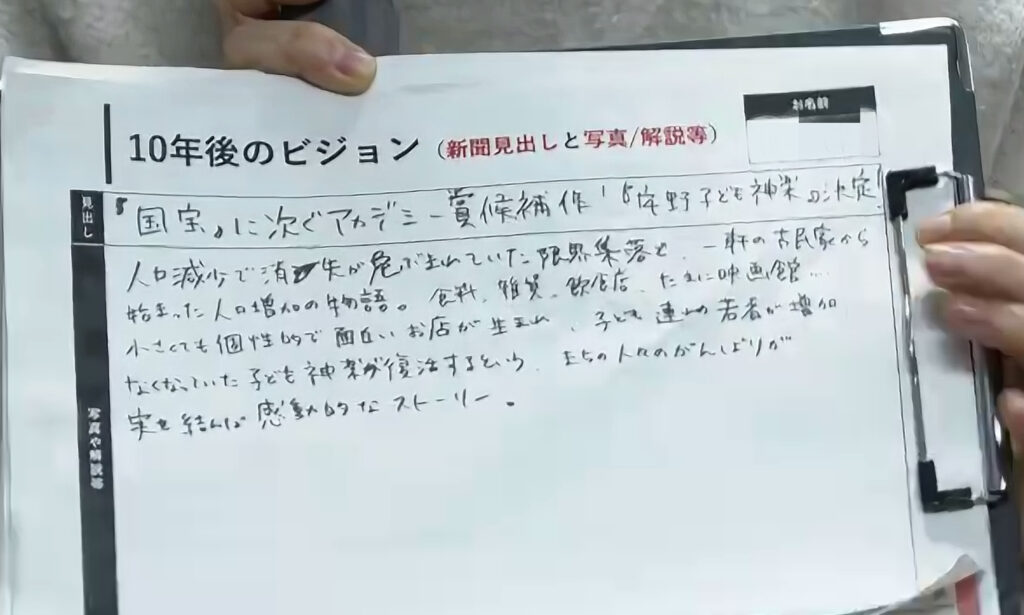 お名前
10年後のビジョン（新聞見出しと写真/解説等）
見出し
『国宝』に次ぐアカデミー賞候補作！『庄野子ども神楽』に決定！
写真や解説等
人口減少で消失が危ぶまれていた限界集落と、一軒の古民家から
始まった人口増加の物語。食料、雑貨、飲食店、たまに映画館…
小さくても個性的で面白いお店が生まれ、子ども連れの若者が増加
なくなっていた子ども神楽が復活するという、まちの人々のがんばりが
実を結んだ感動的なストーリー。